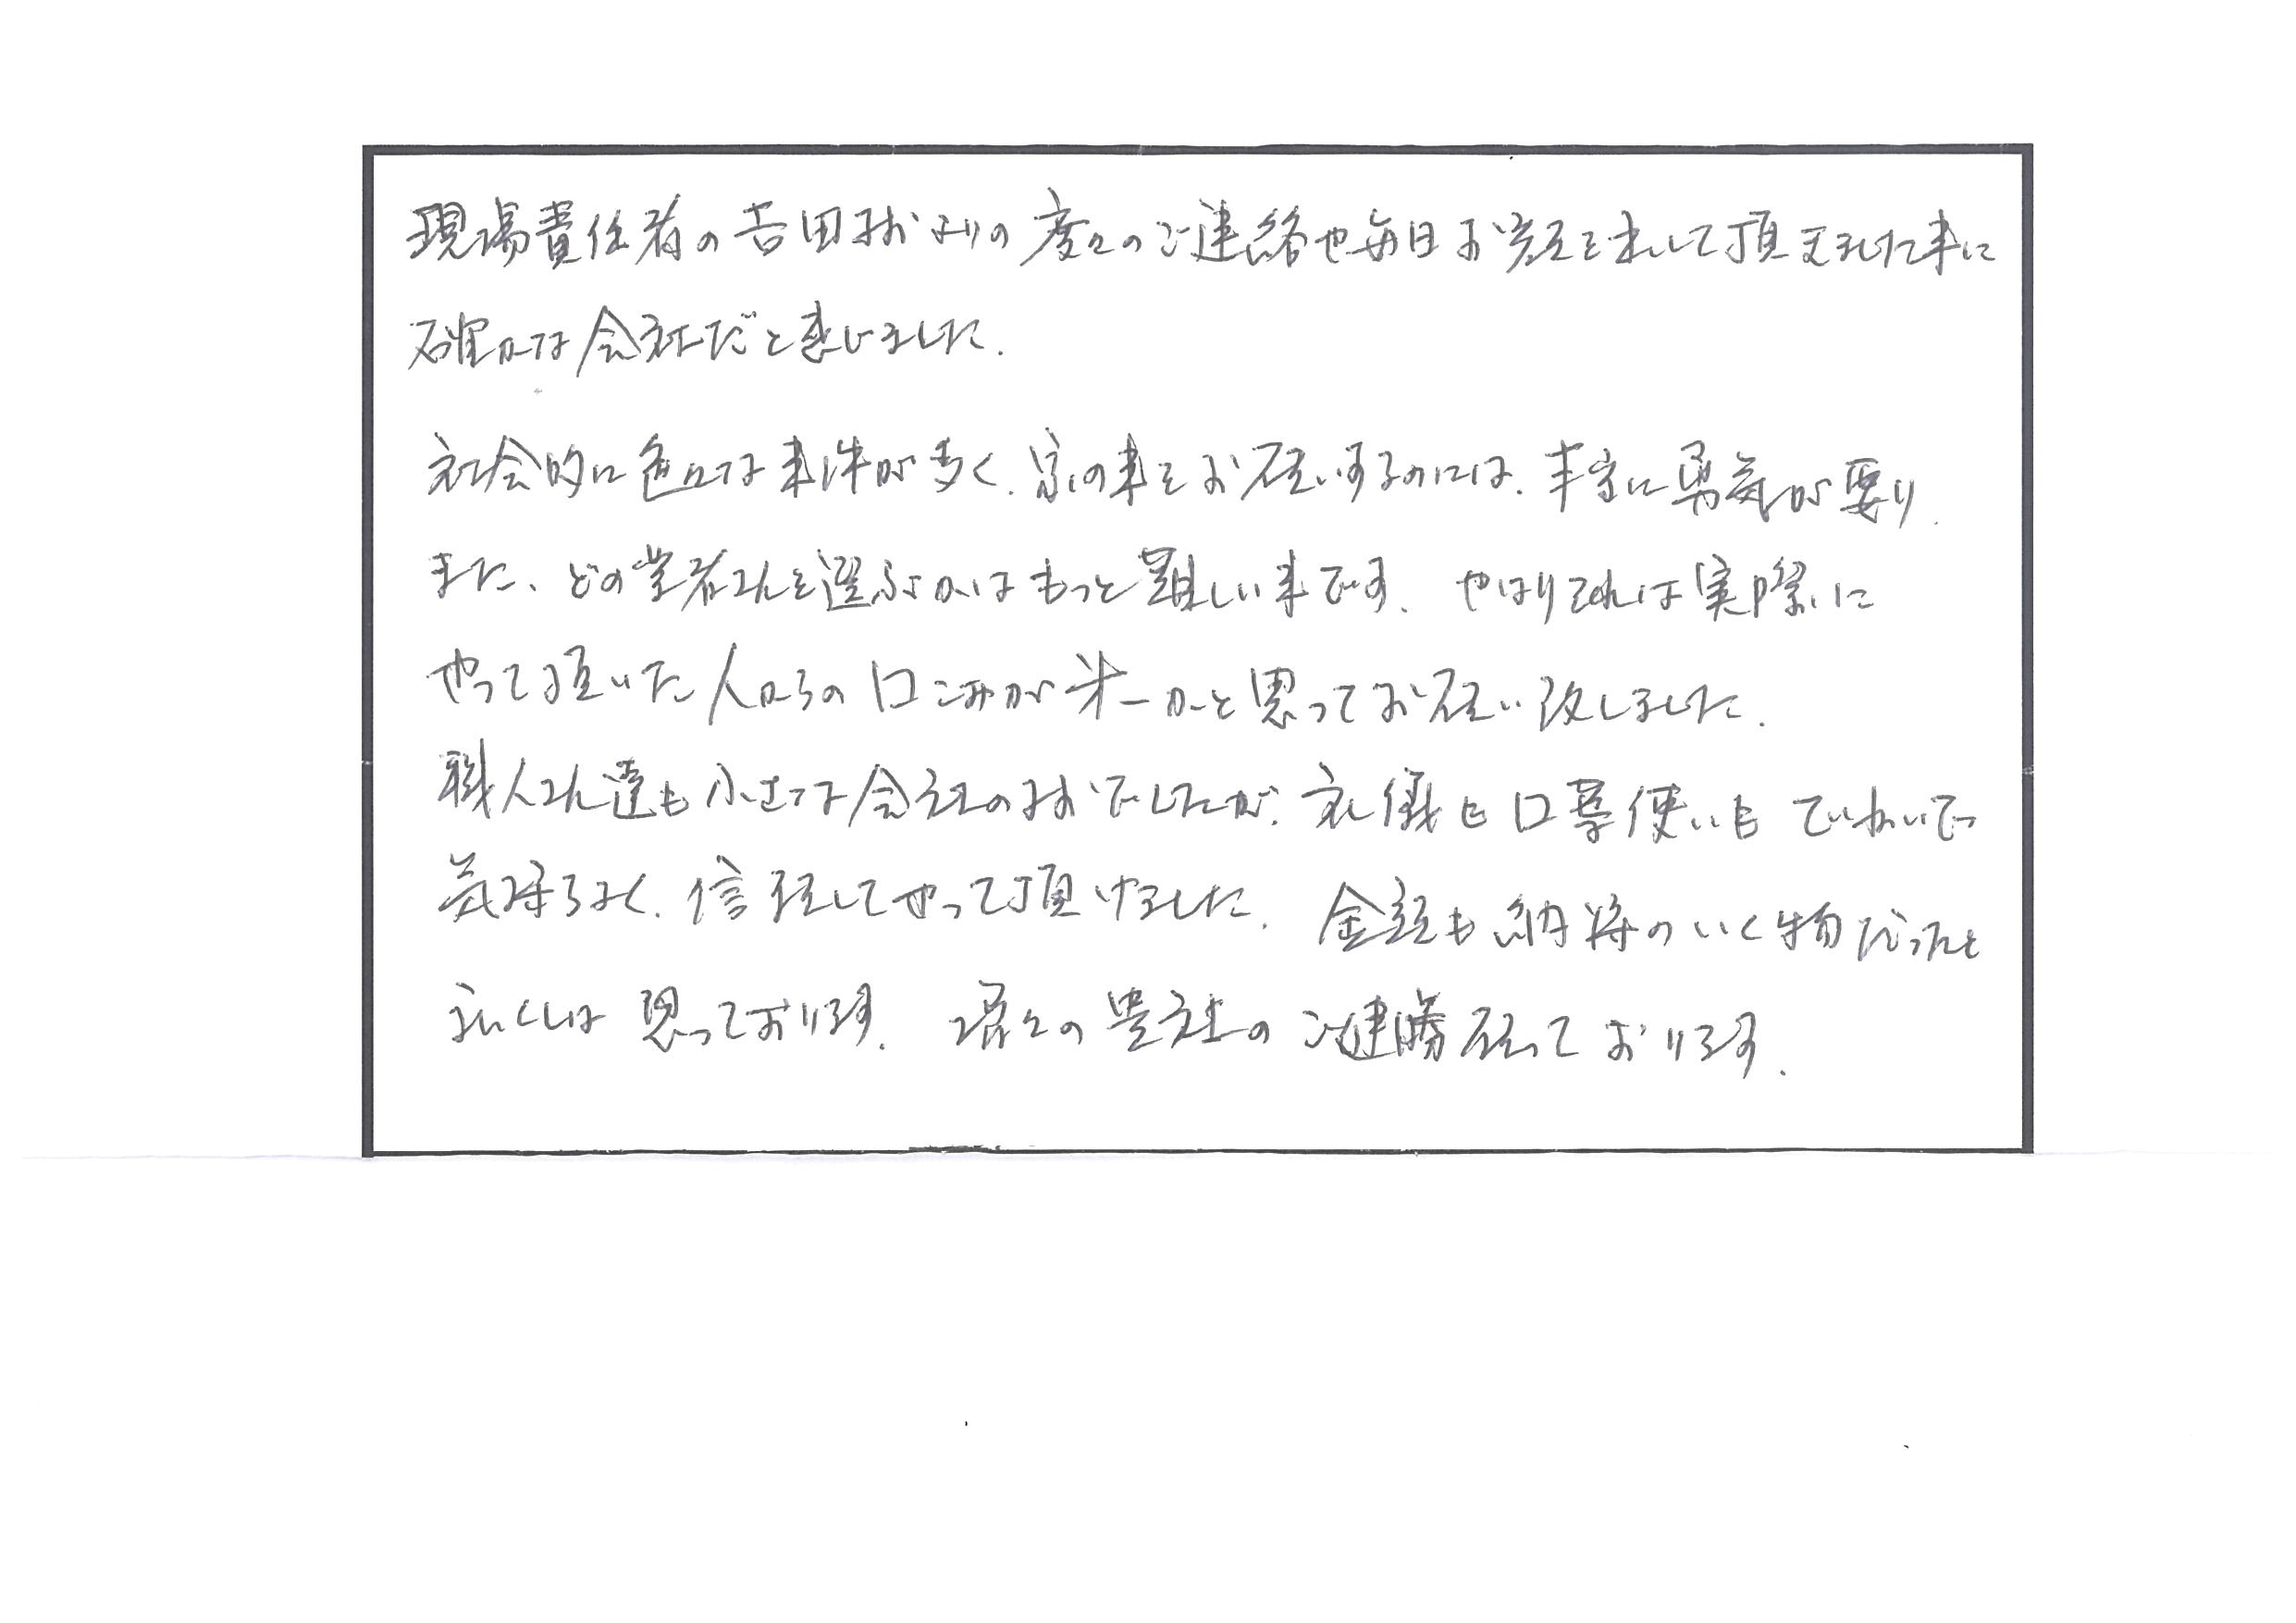 現場責任者の吉田様よりの度々のご連絡や毎日お覚えをして頂きました事に
確かな会社だと感じました.
社会的に色々な事件が多く、家の事をお願いするのには、本当に勇気が要り、
また、どの業者さんを選ぶかはもっと難しい事です. やはりそれは実際に
やって頂いた人からの口こみが第一かと思ってお願い致しました.
職人さん達も小さな会社の様でしたが、礼儀も口葉使いもていねいで
気持ちよく、信頼してやって頂けました. 金額も納得のいく物だったと
私くしは思っております. 増々の貴社のご健勝願っております.